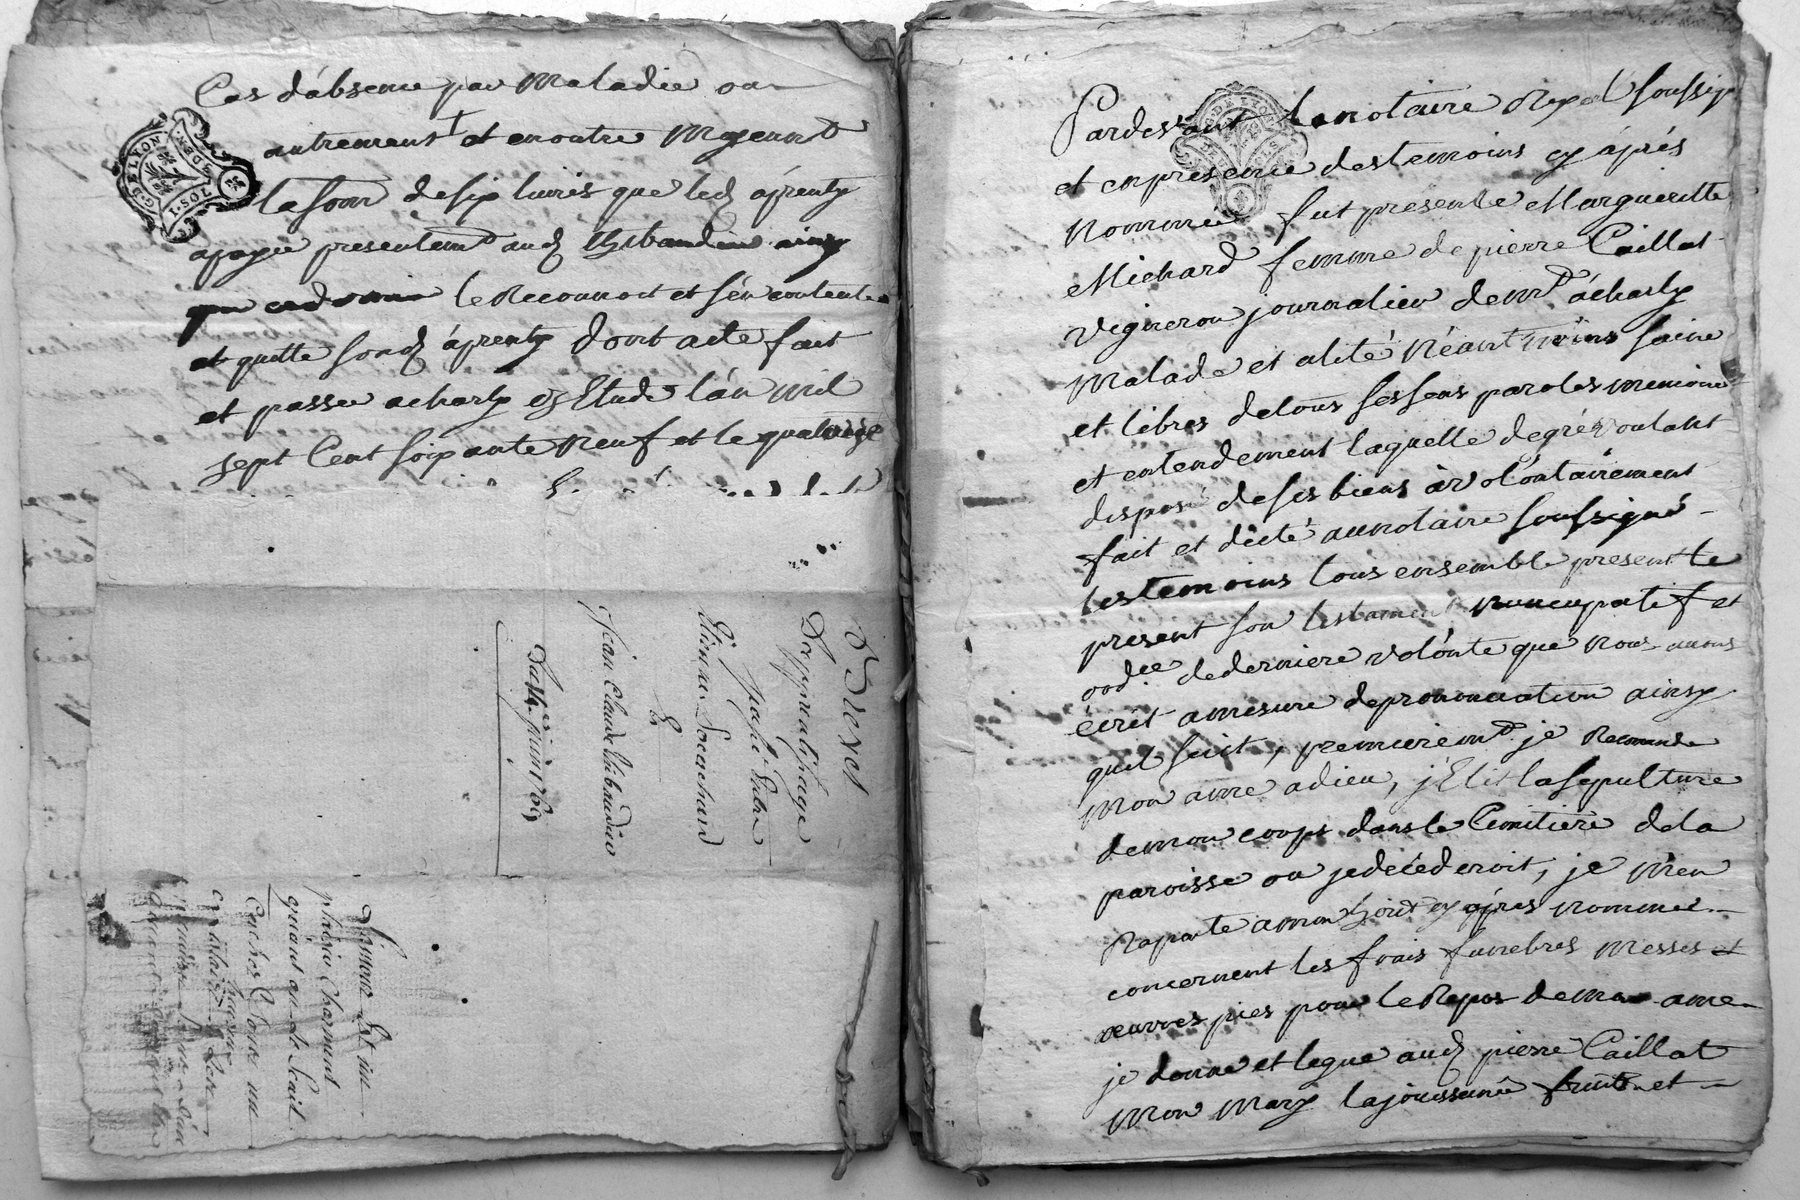 Cas d'absence par Maladie ou
autrement et enoutre Moyennt
la som de six livres que led áprentÿ
apayée presentemt aud Thibaudin ainsy
que cedernier le Reconnoit et s'en contente
et quitte sond áprentÿ dont acte fait
et passée acharly ez Etude l'an mil
sept Cent soixante Neuf et le quatorze
G. DE LYON
Brevet
Dapprentissage
passé Entre
Etienne Socachard
&
Jean Claude thibaudin
Du 14 juin 1769
Simone Est un
plaisir Charmant
quant on le fait
Pardevant le notaire Royal soussigé
et en presence destemoins cy áprés
Nommés fut presente Margueritte
Michard femme de pierre Caillat
vigneron journalier demt ácharly
Malade et alité Néantmoins saine
et libres detous ses sens paroles memoire
et entendement laquelle degré voulant
disposé deses biens à volontairement
fait et dicté aunotaire soussigné
lestemoins tous ensemble present le
present son testament nuncupatif et
ordee dederniere volonté que nous avons
écrit amesure deprononciation ainsy
quil suit, premieremt je Recomande
Mon ame adieu, j'Elit lasepulture
demon corps dans le Cimitiere dela
paroisse ou jedécéderoit, je m'en
Raporte amon hert cy ápres nommée
concernent les frais funebres Messes et
œuvres pies pour le Repos de mon ame
je donne et legue aud pierre Caillat
Mon Mary lajouissance fruits et